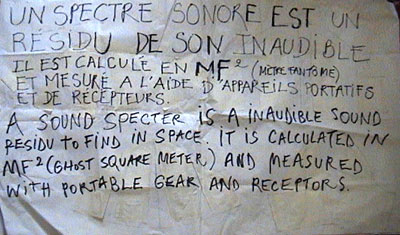 UN SPECTRE SONORE EST UN
RÉSIDU DE SON INAUDIBLE
IL EST CALCULÉ EN MF² (MÈTRE FANTÔME)
ET MESURÉ A L'AIDE D'APPAREILS PORTATIFS
ET DE RÉCEPTEURS.
A SOUND SPECTER IS A INAUDIBLE SOUND
RESIDU TO FIND IN SPACE. IT IS CALCULATED IN
MF² (GHOST SQUARE METER) AND MEASURED
WITH PORTABLE GEAR AND RECEPTORS.